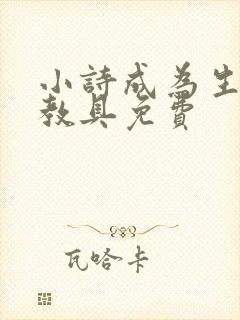 小詩成為生
教具免費
瓦哈卡